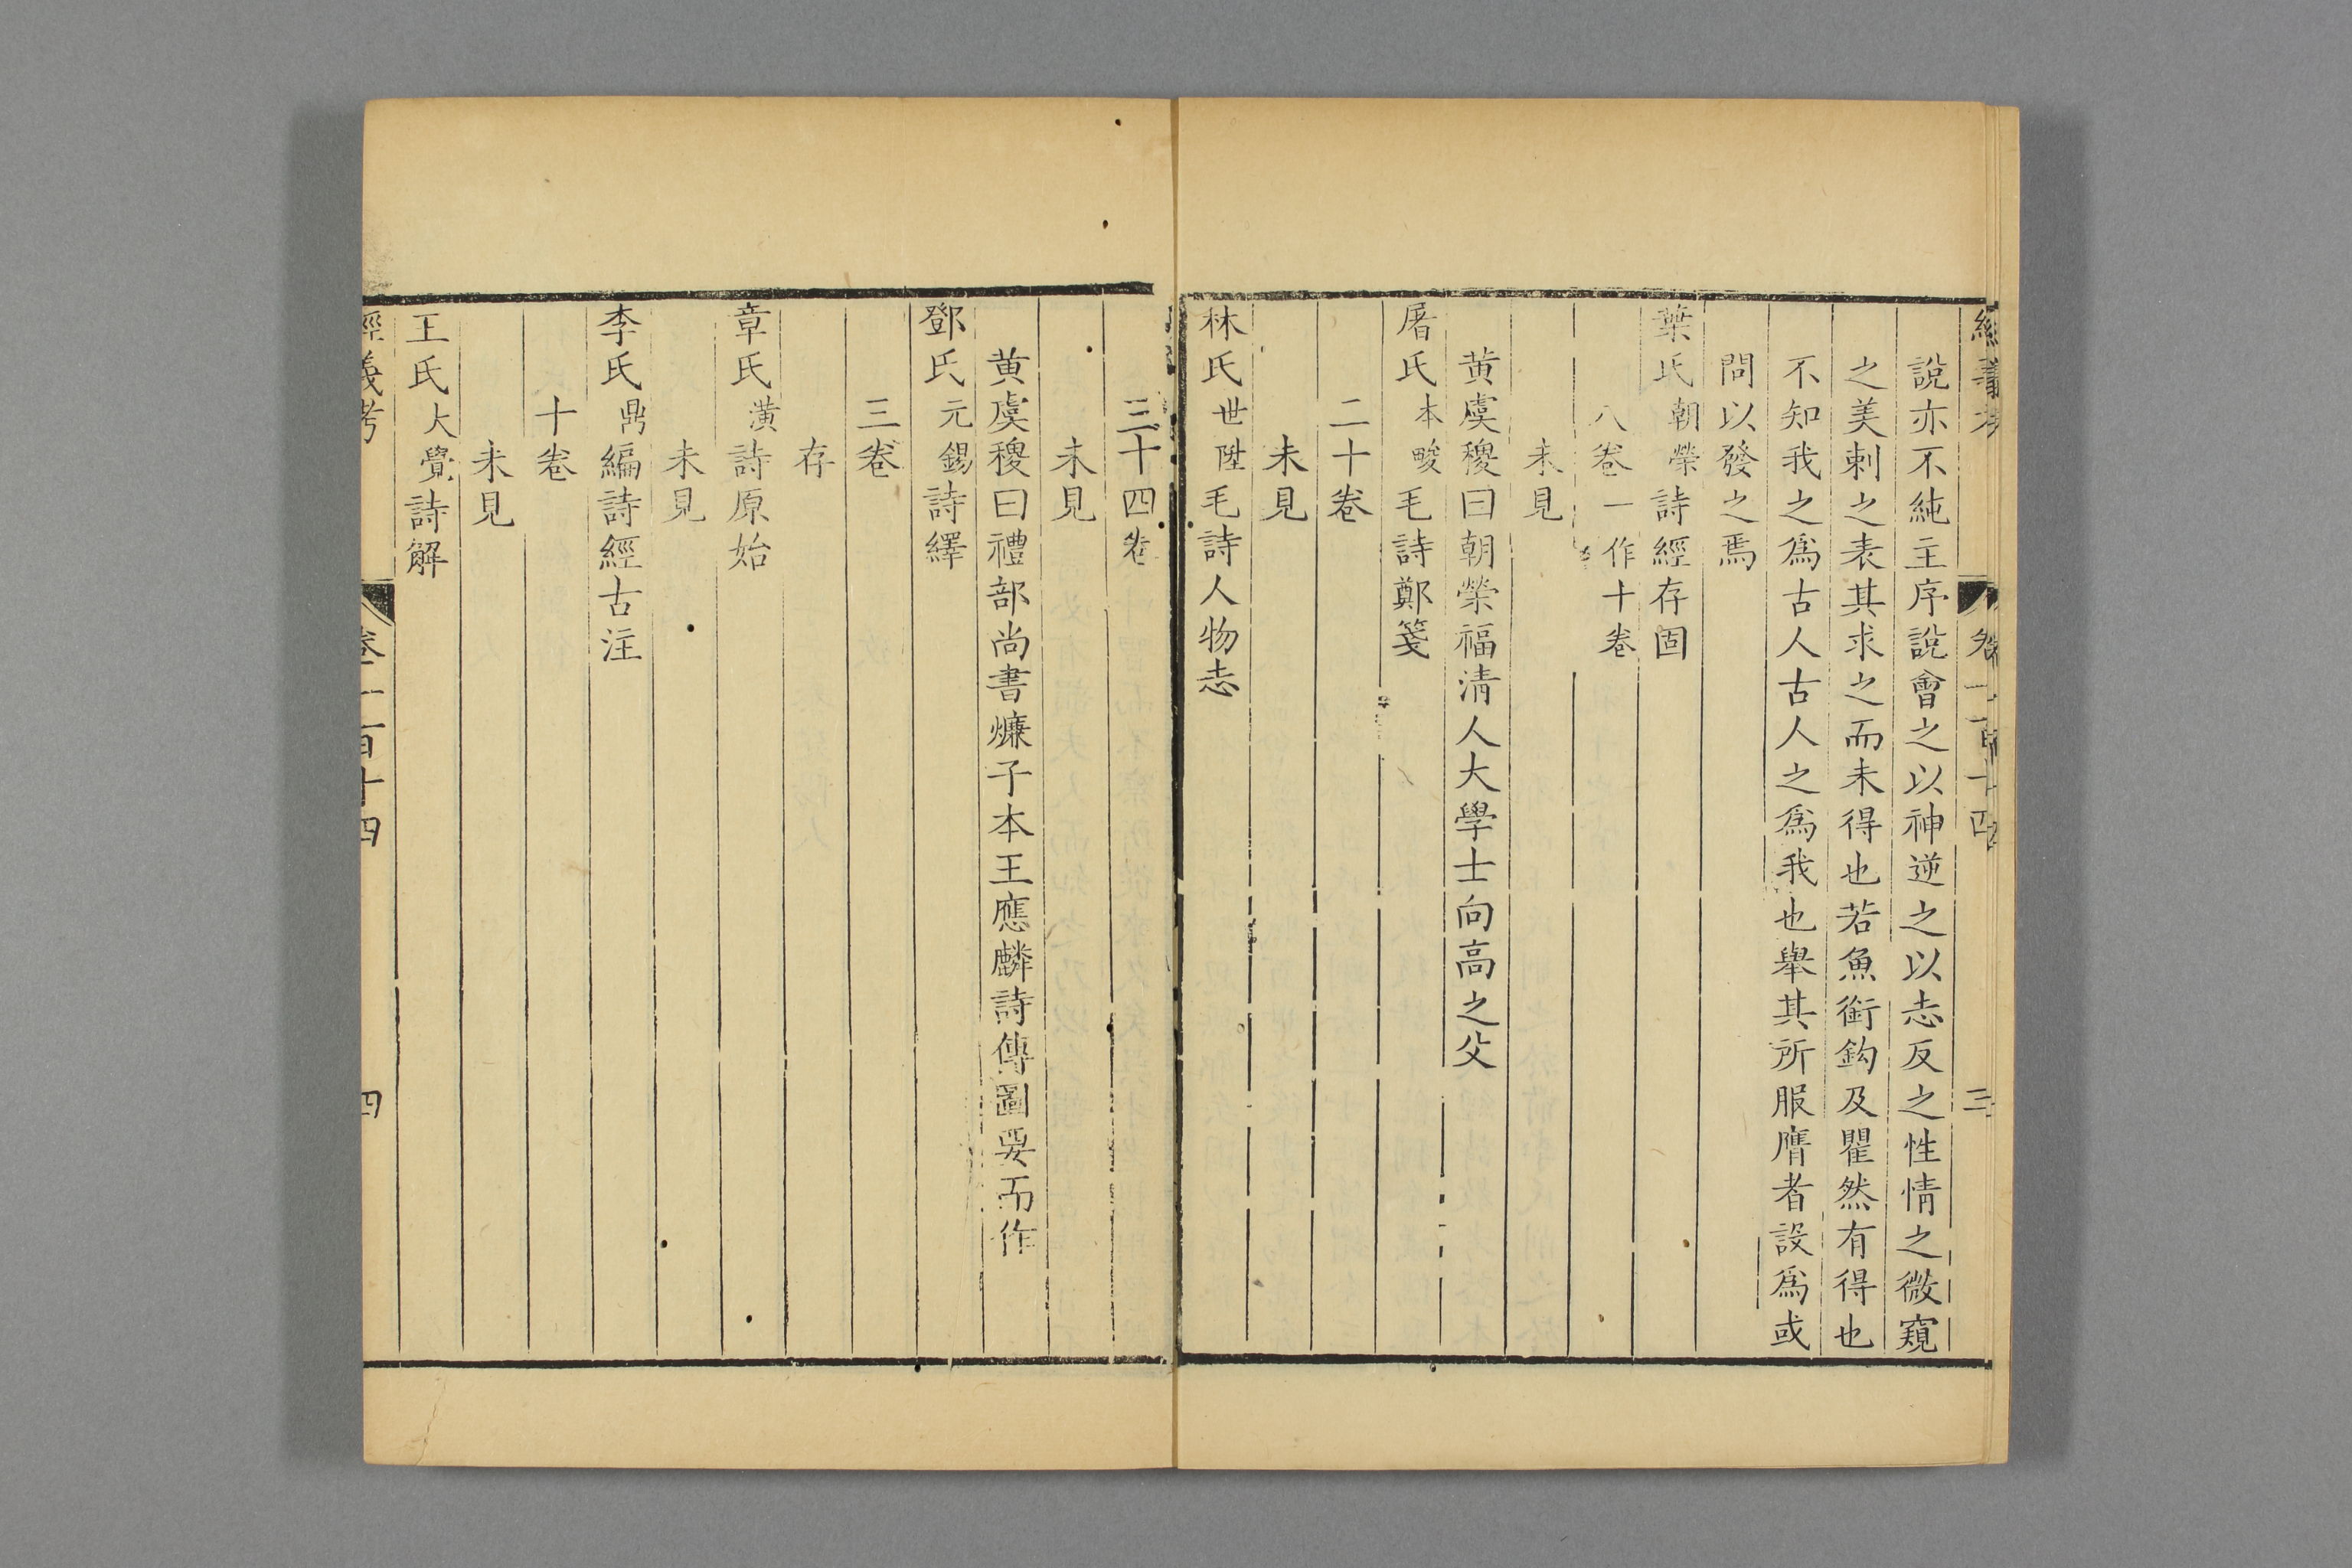 經義考 卷一百十四 三
說亦不純主序說會之以神逆之以志反之性情之微窺
之美刺之表其求之而未得也若魚銜鈎及瞿然有得也
不知我之爲古人古人之爲我也舉其所服膺者設爲或
問以發之焉
葉氏朝榮詩經存固
八卷一作十卷
未見
黄虞稷曰朝榮福清人大學士向高之父
屠氏本畯毛詩鄭箋
二十卷
未見
林氏世陞毛詩人物志
三十四卷
未見
黄虞稷曰禮部尚書燫子本王應麟詩傳圖要而作
鄧氏元錫詩繹
三卷
存
章氏潢詩原始
未見
李氏鼎編詩經古注
十卷
未見
王氏大覺詩解
經義考 卷一百十四 四